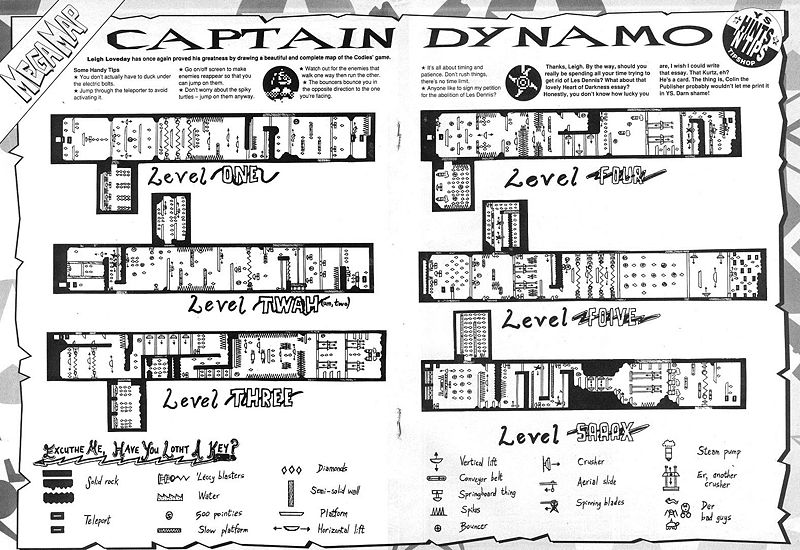 MEGAMAP
CAPTAIN DYNAMO
YS
HINTS
& TIPS
TIPSHOP
Leigh Loveday has once again proved his greatness by drawing a beautiful and complete map of the Codies' game.
Some Handy Tips
★ You don't actually have to duck under
the electric bolts.
★ Jump through the teleporter to avoid
activating it.
★ Go on/off screen to make
enemies reappear so that you
can jump on them.
★ Don't worry about the spiky
turtles – jump on them anyway.
★ Watch out for the enemies that
walk one way then run the other.
★ The bouncers bounce you in
the opposite direction to the one
you're facing.
★ It's all about timing and
patience. Don't rush things,
there's no time limit.
★ Anyone like to sign my petition
for the abolition of Les Dennis?
Thanks, Leigh. By the way, should you
really be spending all your time trying to
get rid of Les Dennis? What about that
lovely Heart of Darkness essay?
Honestly, you don't know how lucky you
are, I wish I could write
that essay. That Kurtz, eh?
He's a card. The thing is, Colin the
Publisher probably wouldn't let me print it
in YS. Darn shame!
Level ONE
Level TWAH (um, two)
Level THREE
Level FOUR
Level FOIVE
Level SAAAX
EXCUTHE ME, HAVE YOU LOTHT A KEY?
Solid rock
Teleport
'Leccy blasters
Water
500 pointies
Slow platform
Diamonds
Semi-solid wall
Platform
Horizontal lift
Vertical lift
Conveyer belt
Springboard thing
Spikes
Bouncer
Crusher
Aerial slide
Spinning blades
Steam pump
Er, another
crusher
Der
bad guys